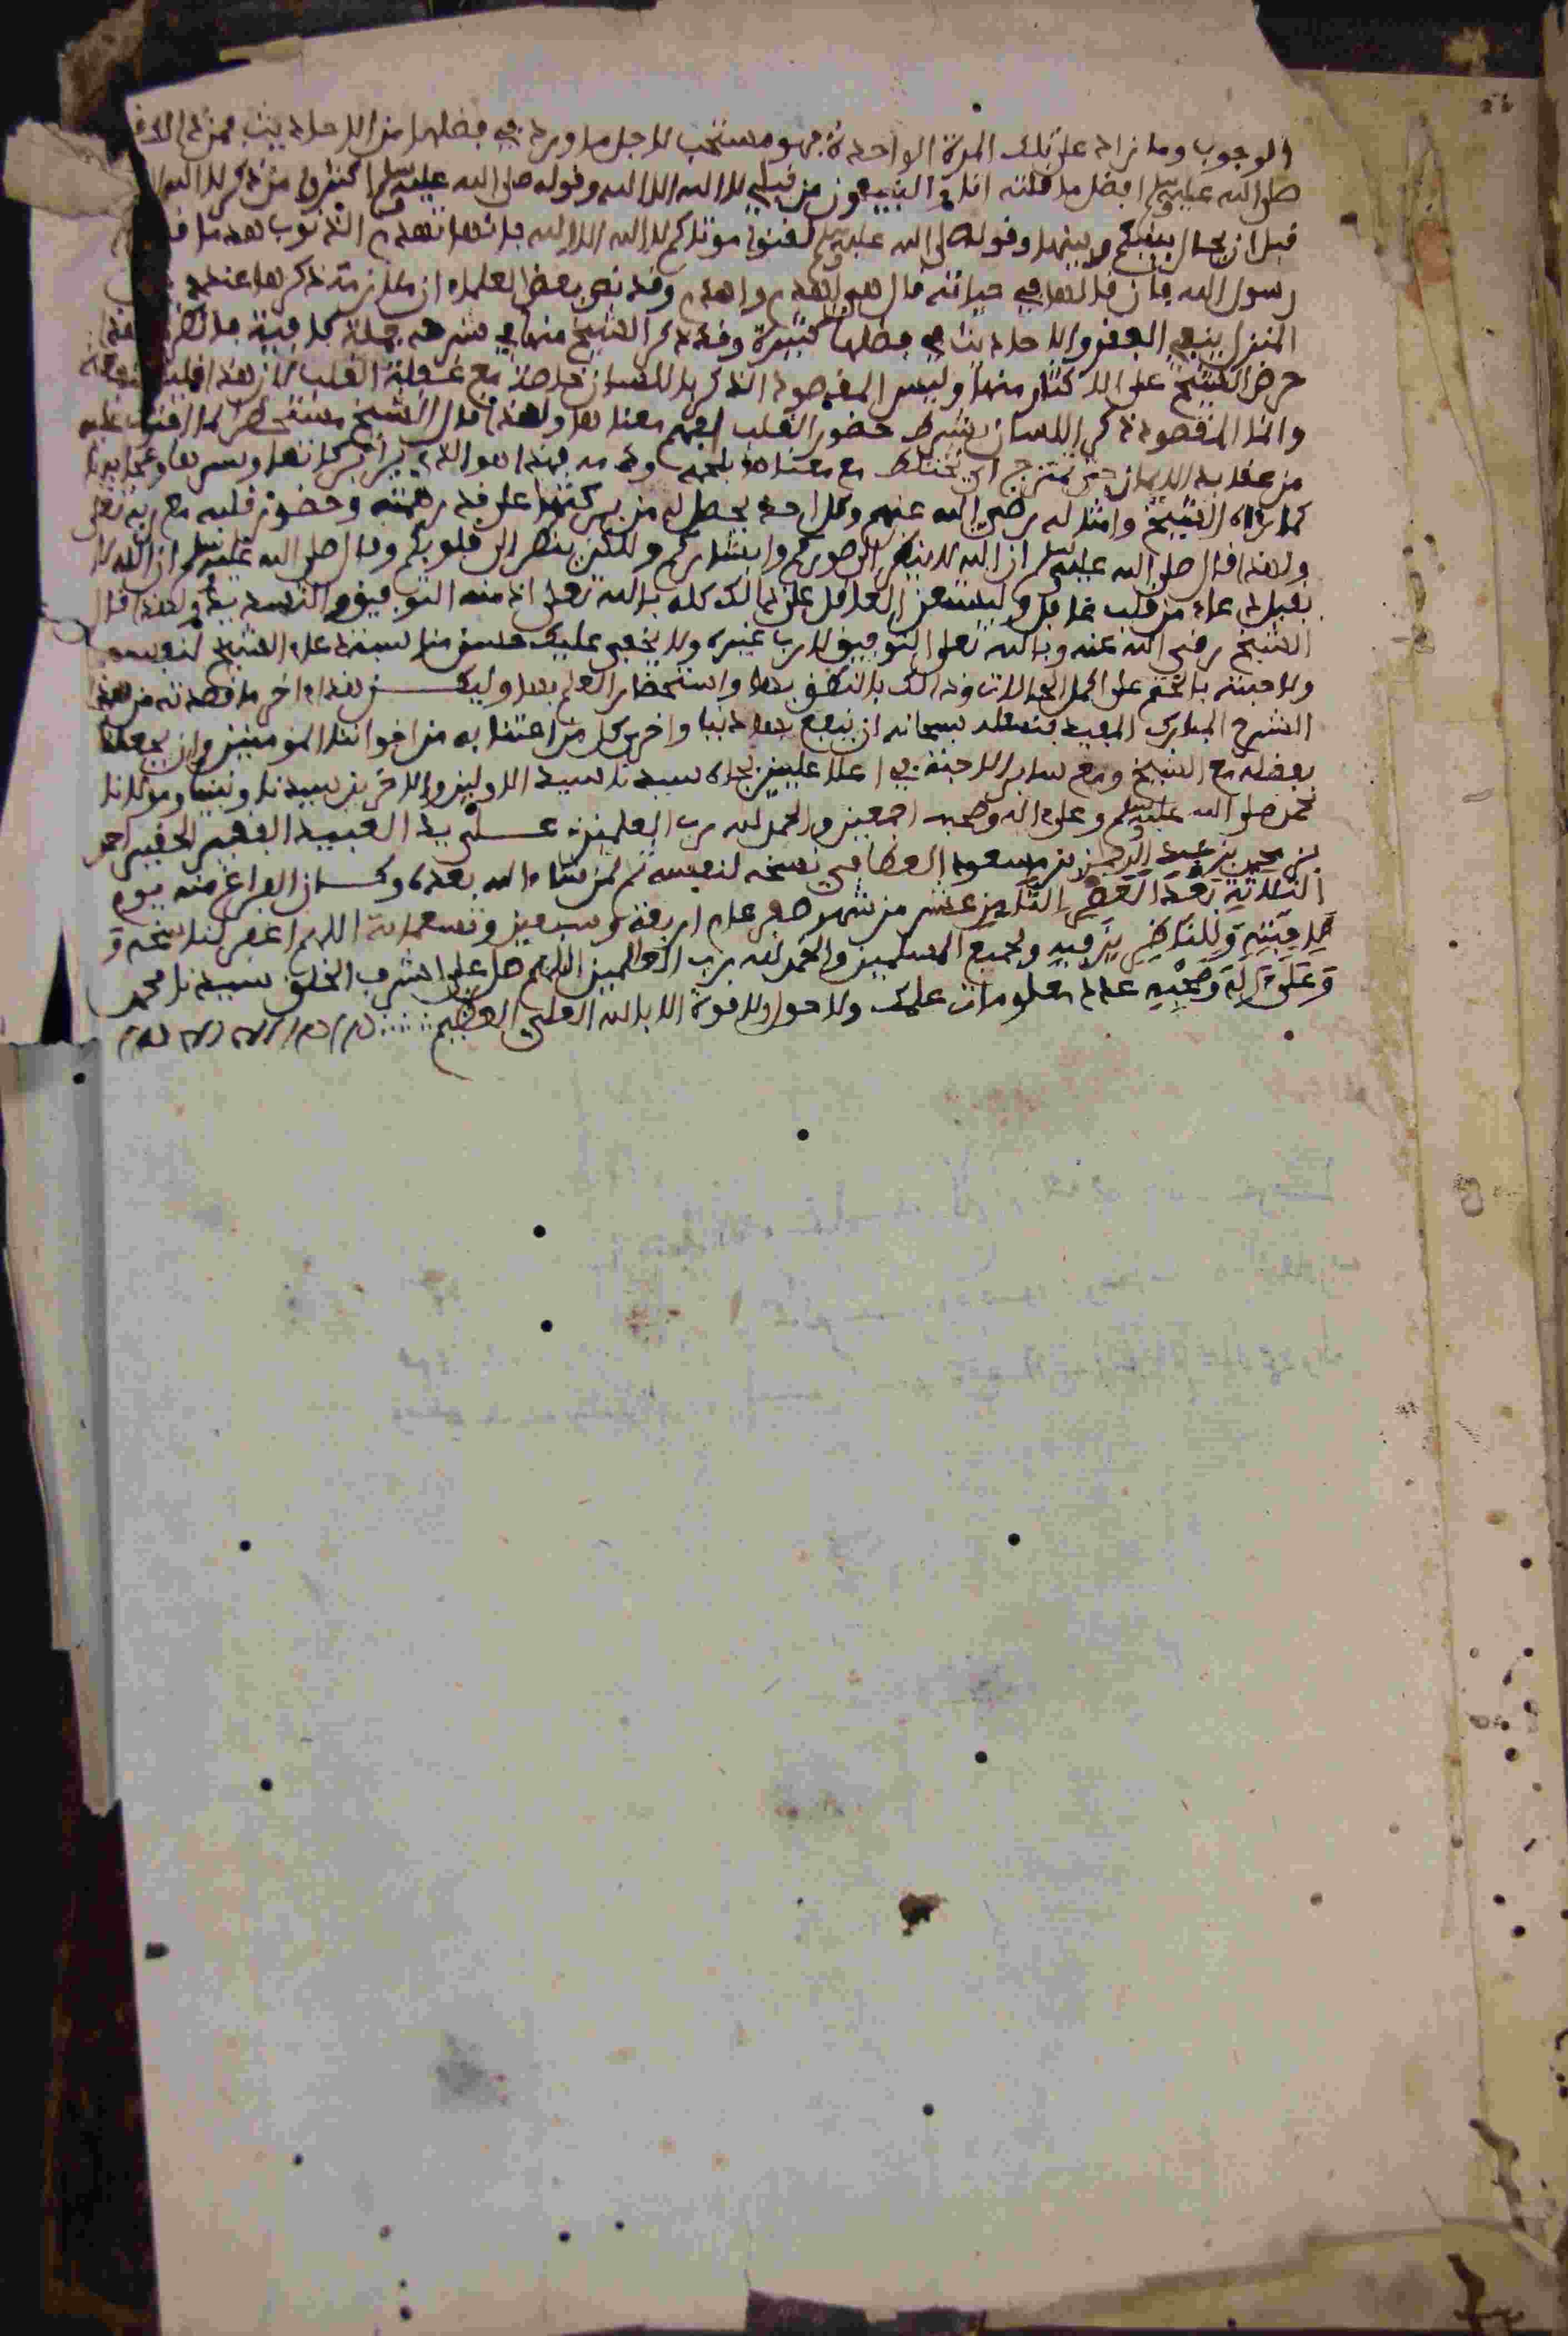 الوجوب وما زاد على تلك المرة الواحدة فهو مستحب لاجل ما ورد في فضلها من الاحاديث فمن ذلك
صلى الله عليه وسلم افضل ما قلته انا والنبيئون من قبلي لا اله الا الله وقوله صلى الله عليه وسلم اكثروا من ذكر لا اله الا
قبل ان يحال بينكم وبينها وقوله صلى الله عليه وسلم لقنوا موتاكم لا اله الا الله فانها تهدم الذنوب هدما
رسول الله فان قالها في حياته قال هي اهدم واهدم وقد نص بعض العلماء ان ملازمة ذكرها عند
المنزل ينفي الفقر والاحاديث في فضلها كثيرة وقد ذكر الشيخ منها في شرحه جملة كافية فانظره
حرض الشيخ على الاكثار منها وليس المقصود الذكر باللسان خاصة مع غفلة القلب لان هذا قليل
وانما المقصود ذكر اللسان بشرط حضور القلب لفهم معناها ولهذا قال الشيخ مستحضرا لما احتوت عليه
من عقايد الايمان حتى تمتزج اي تختلط مع معناها بلحمه ودمه فهذا هو الذي يرا بركاتها وسرها وعجايبها
كما رءاه الشيخ وامثاله رضي الله عنهم وكل احد يحصل له من بركتها على قدر همته وحضور قلبه مع ربه تعلى
ولهذا قال صلى الله عليه وسلم ان الله لا ينظر الى صوركم وابشاركم ولكن ينظر الى قلوبكم وقال صلى الله عليه وسلم ان الله لا
يقبل دعاء من قلب غافل وليستعن العاقل على ذالك كله بالله تعلى اذ منه التوفيق والتسديد ولهذا قال
الشيخ رضي الله عنه وبالله تعلى التوفيق لا رب غيره ولا يخفى عليك حسن مناسبة دعاء الشيخ لنفسه
ولاحبته بالختم على اكمل الحالات وذالك بالنطق بها واستحضار العلم بها وليكن هذا ءاخر ما قصدته من هذا
الشرح المبارك المفيد فنسئله سبحانه ان ينفع بها دنيا واخرى كل من اعتنا به من اخواننا المومنين وان يجعلنا
بفضله مع الشيخ ومع ساير الاحبة في اعلا عليين بجاه سيدنا سيد الاولين والاخرين سيدنا ونبينا ومولانا
محمد صلى الله عليه وسلم وعلى ءاله وصحبه اجمعين والحمد لله رب العلمين على يد العبيد الفقير الحقير احمد
بن محمد بن عبد الرحمن بن مسعود نسخه لنفسه ثم لمن شاء الله بعده وكان الفراغ منه يوم
الثلاثة بعد العصر الثامن عشر من شهر صفر عام اربعة وسبعين وتسعماية اللهم اغفر لناسخه و
لكاتبه وللناظر فيه ولجميع المسلمين والحمد لله رب العالمين اللهم صل على اشرف الخلق سيدنا محمد
وعلى ءاله وصحبه عدد معلومات علمك ولا حول ولا قوة الا بالله العلي العظيم